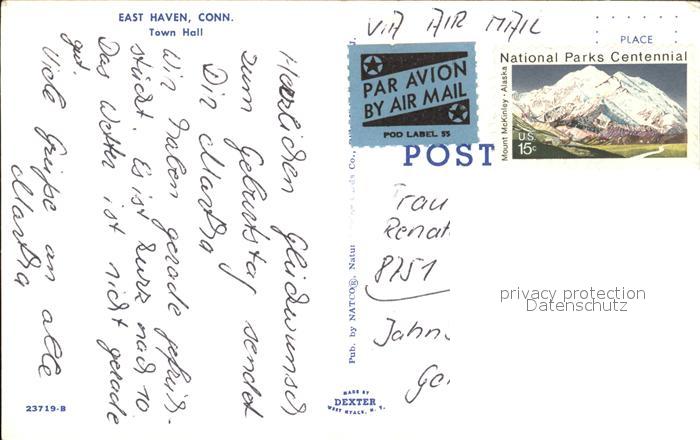 EAST HAVEN, CONN.
Town Hall
Herzlichen Glückwunsch
zum Geburtstag sendet
Dir Martha
Wir haben gerade gefrüh-
stückt. Es ist kurz nach 10.
Das Wetter ist nicht gerade
gut.
Viele Grüße an alle
Martha
23719-B
Pub. by NATCO®, Natur
MADE BY
DEXTER
WEST NYACK, N. Y.
VIA AIR MAIL
PAR AVION
BY AIR MAIL
POD LABEL 55
PLACE
National Parks Centennial
Mount McKinley · Alaska
U.S.
15c
POST
Frau
Renat
8751
Jahn
Ge
privacy protection
Datenschutz